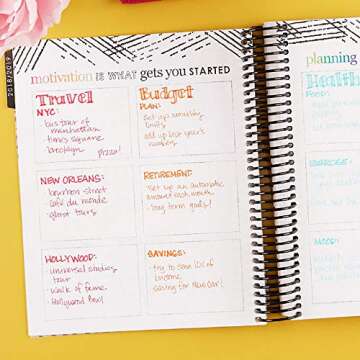 2018/2019
motivation IS WHAT gets you STARTED
Travel
NYC:
- bus tour of
manhattan
- times square
- brooklyn
pizza!
NEW ORLEANS:
- bourbon street
- café du monde
- ghost tours
HOLLYWOOD:
- universal studios
tour
- walk of fame
- Hollywood Bowl
Budget
PLAN:
- set up monthly
- add up last year's
numbers
RETIREMENT
- set up an automatic
amount each month
- long term goals!
SAVINGS:
- try to save 10% of
income
- saving for New Car!
planning
Health
FOOD:
EXERCISE:
MOOD: